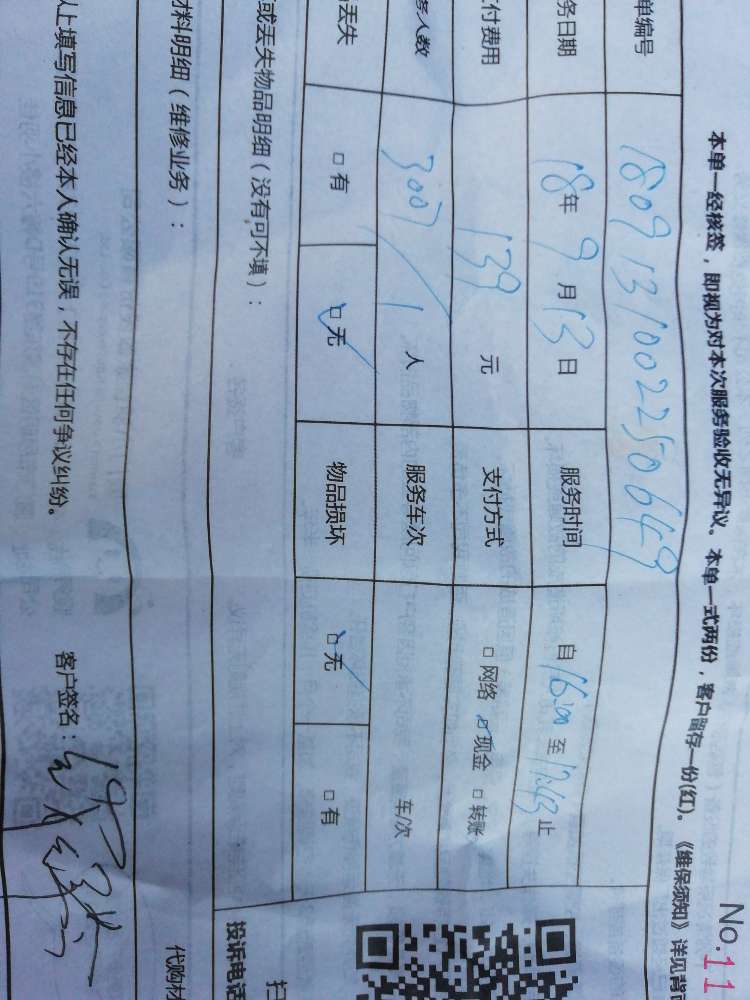 No.11
本单一经核签，即视为对本次服务验收无异议。本单一式两份，客户留存一份(红)。《维保须知》详见背
单编号 180913100225 0649
务日期 18年 9月 13日 服务时间 自 16:00 至 17:43 止
付费用 139 元 支付方式 □网络 ☑现金 □转账
务人数 3007/1 人 服务车次 车/次
丢失 □有 ☑无 物品损坏 ☑无 □有
或丢失物品明细（没有可不填）：
扫
投诉电话
材料明细（维修业务）：
代购材
以上填写信息已经本人确认无误，不存在任何争议纠纷。 客户签名：